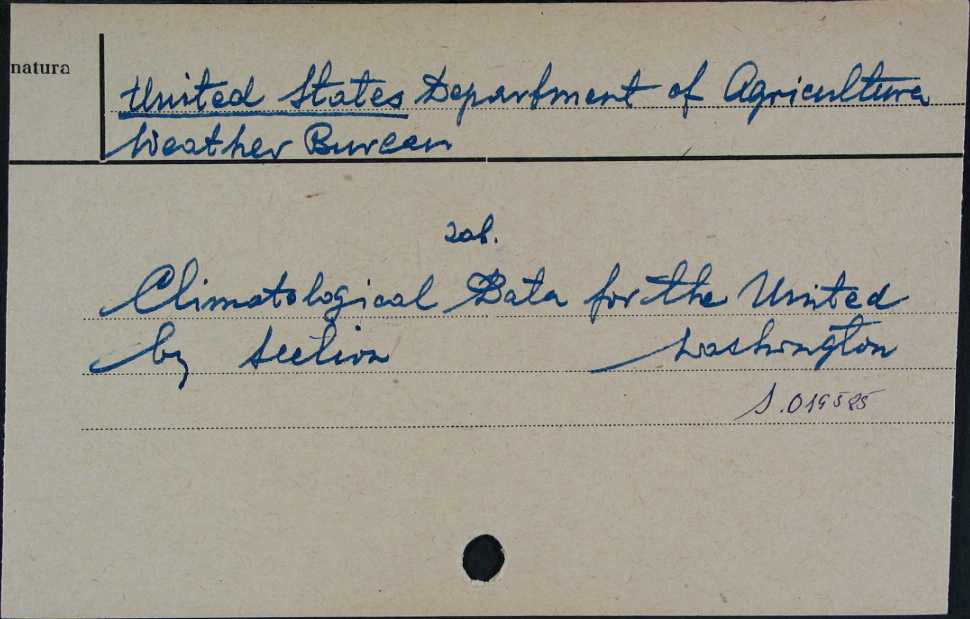 natura
United States Department of Agricultura
Weather Bureau
zob.
Climatological Data for the United
by section Washington